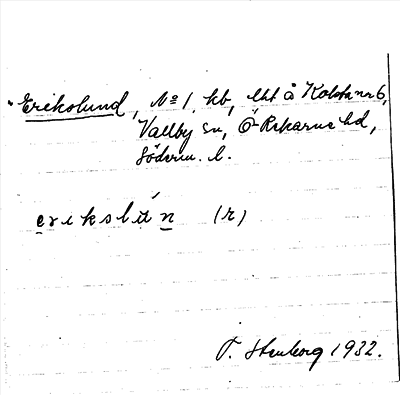 "Erikslund, No 1, kb, lht å Kolsta nr 6,
Vallby sn, Ö Rekarne hd,
Söderm. l.
erikslún (r)
T. Stenborg 1932.